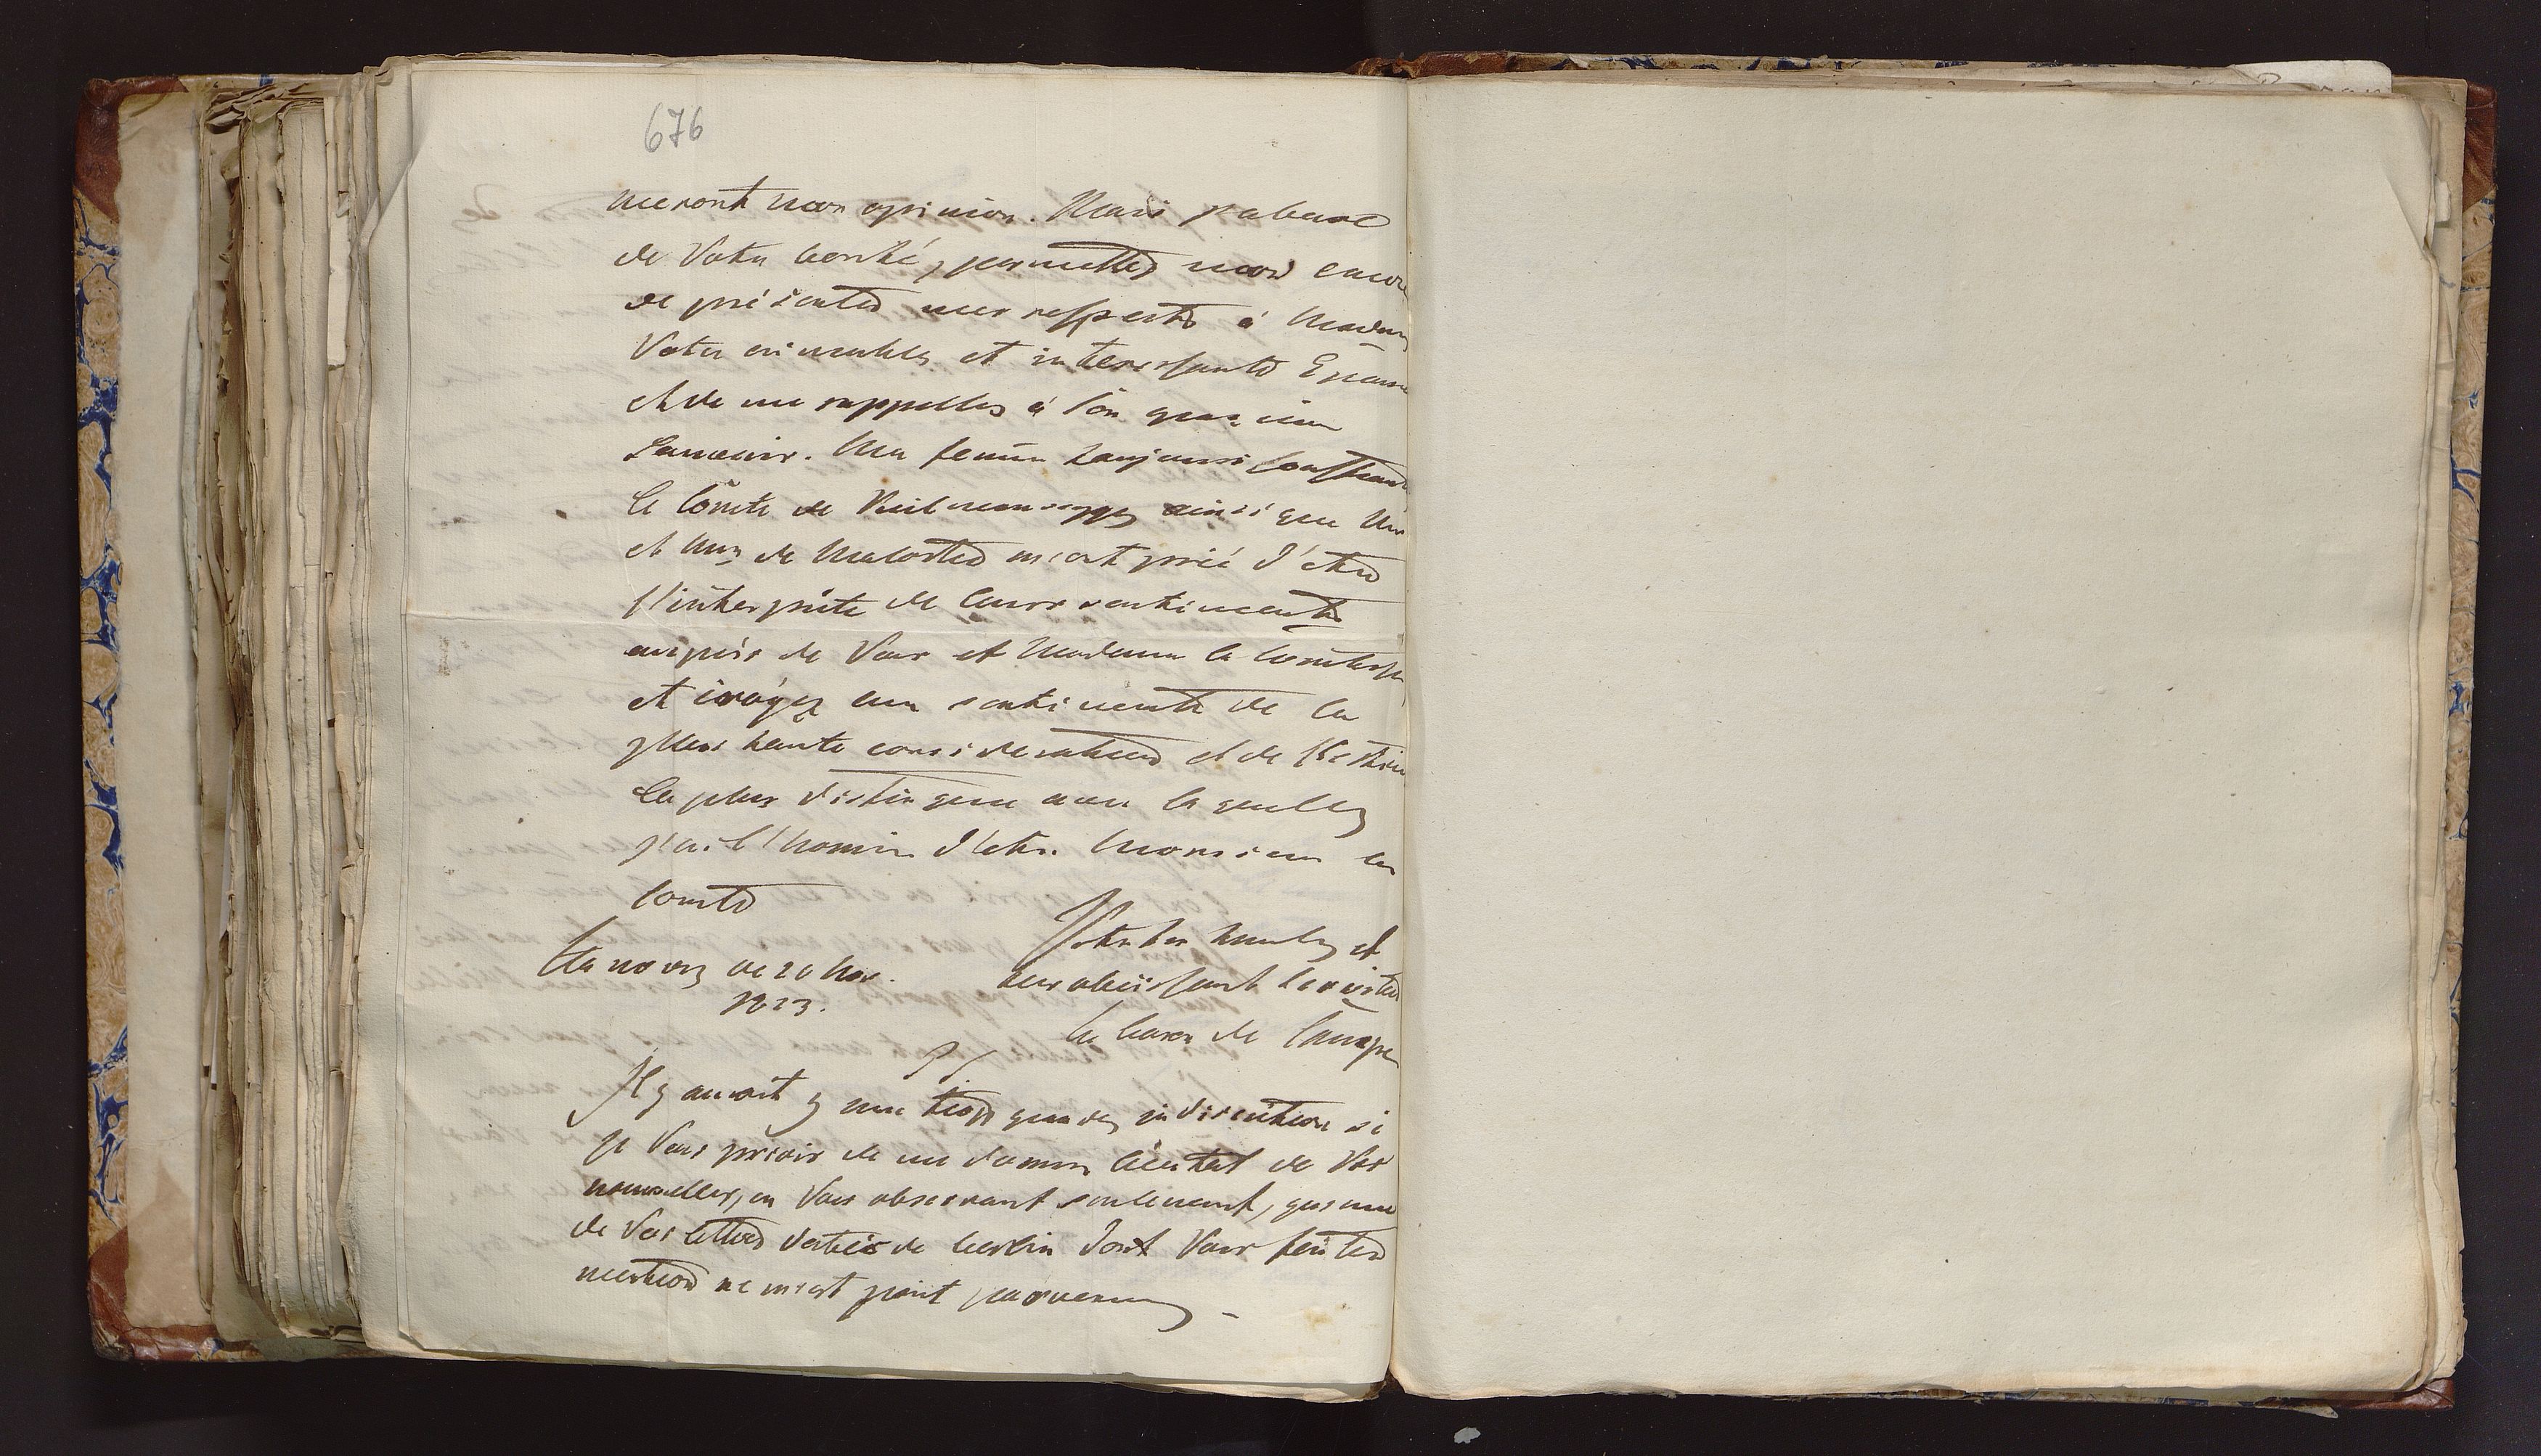 676
meront mon opinion. Mais j'abuse
de Votre bonté, permettes moi encore
de présenter mes respects à Madame
Votre aimable et interessante Epouse
et de me rappeller à son gracieux
souvenir. Ma femme toujours souffrante
le Comte de ainsi que Mr
et Mme de Malortie m'ont prié d'être
l'interprète de leurs sentiments
auprès de Vous et Madame la Comtesse
et croyez aux sentiments de la
plus haute consideration et de l'estime
la plus distinguée avec laquelle
j'ai l'honneur d'être Monsieur le
Comte
Votre tres humble et
tres obeissant serviteur
Hanovre ce 20 Nov.
1823.
le baron de
PS
Il y auroit une trop grande indiscretion si
je Vous priois de me donner bientot de Vos
nouvelles, en Vous observant seulement, qu'une
de Vos lettres de berlin dont Vous faites
mention ne m'est point parvenue –